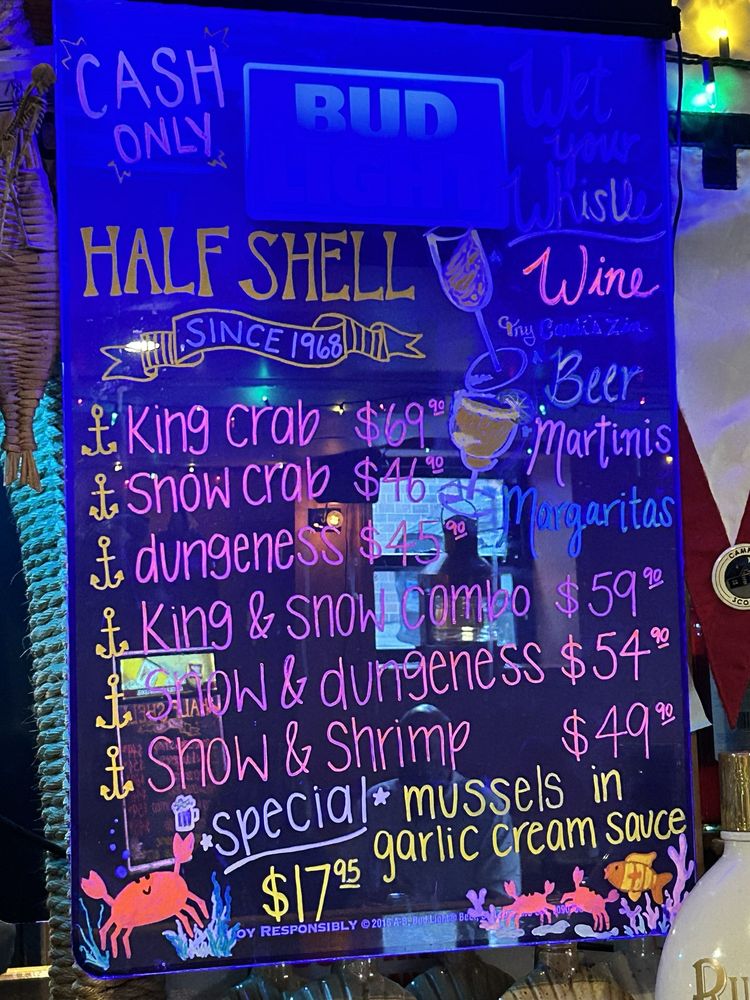 CASH
ONLY
BUD
LIGHT
Wet
your
Whistle
HALF SHELL
SINCE 1968
Wine
Beer
Martinis
Margaritas
King crab $69.90
snow crab $46.90
dungeness $45.90
King & snow combo $59.90
snow & dungeness $54.90
snow & shrimp $49.90
*special* mussels in
garlic cream sauce
$17.95
OY RESPONSIBLY © 2016 A-B, Bud Light® Beer, S